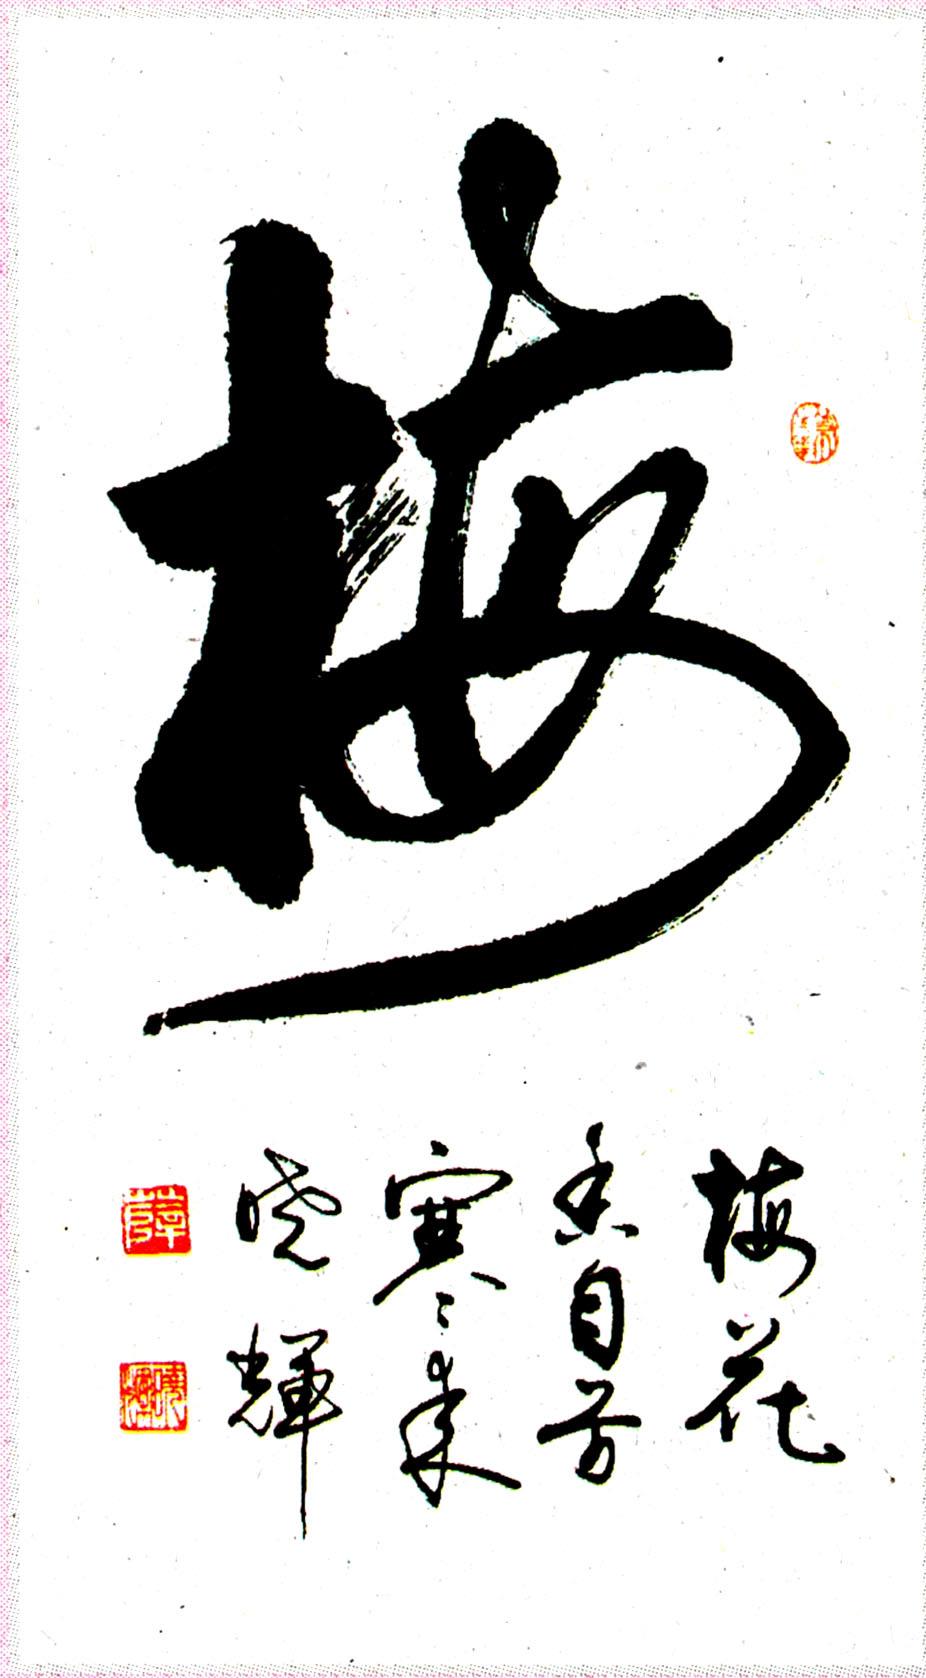 梅
梅花
香自苦
寒来
晓輝
薛